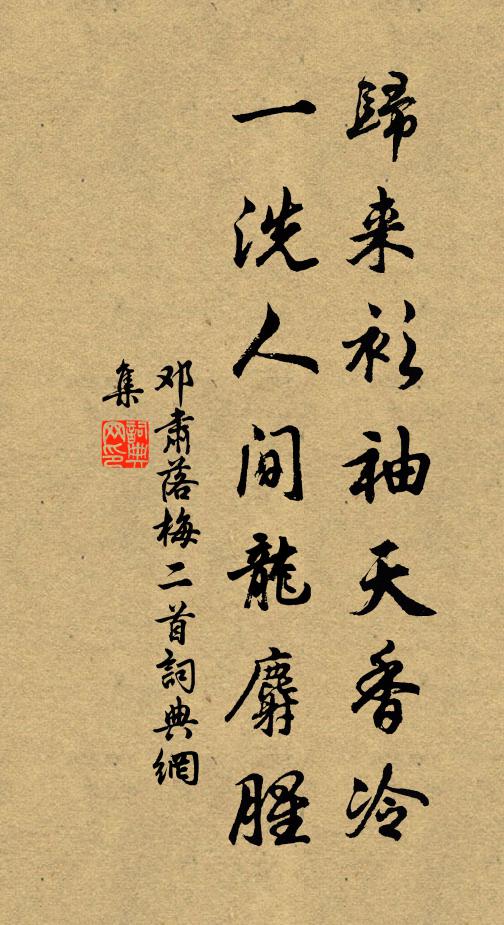 歸来衫袖天香冷
一洗人间龍麝腥
邓肅落梅二首詞典網
集
詞典
网印